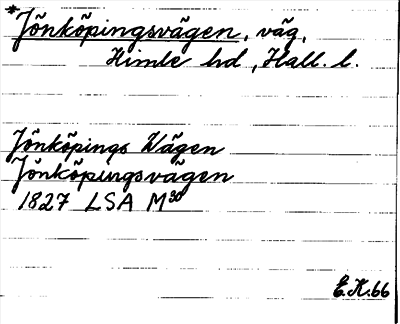 *Jönköpingsvägen, väg,
Himle hd, Hall. l.
Jönköpings Wägen
Jönköpingsvägen
1827 LSA M30
E.K.66